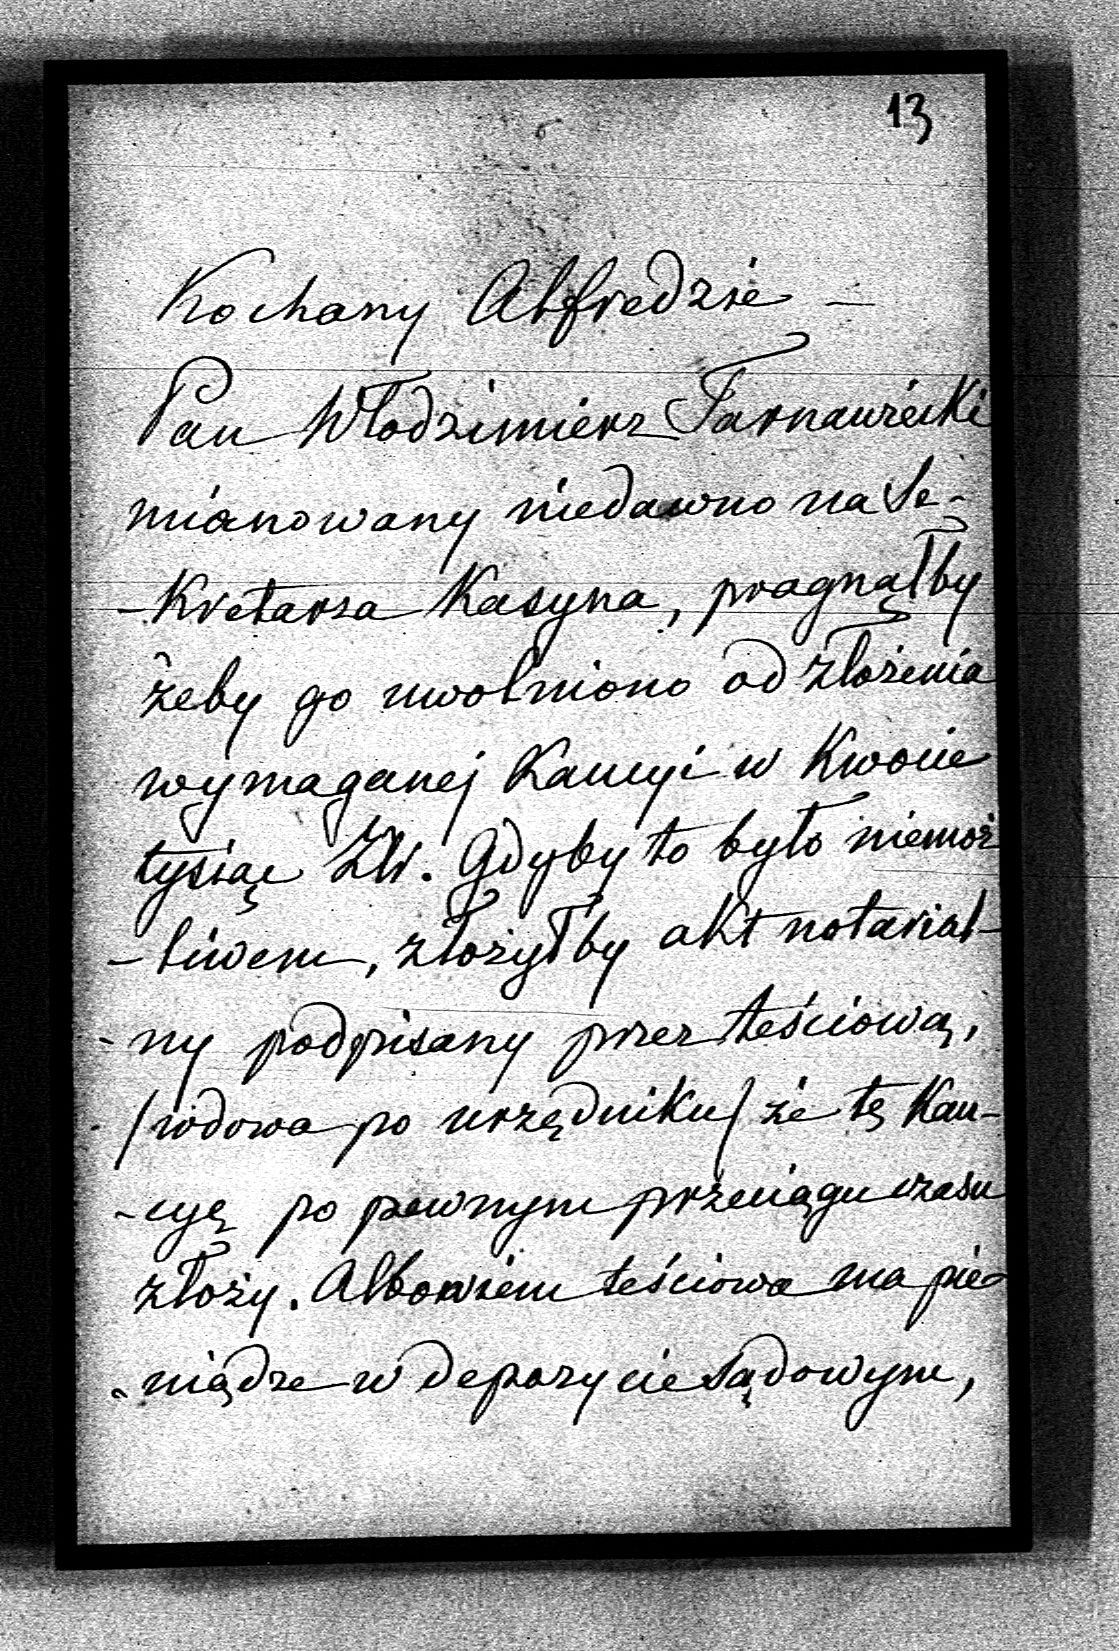 13
Kochany Alfredzie —
Pan Włodzimierz Tarnawiecki
mianowany niedawno na Se-
-kretarza Kasyna, pragnąłby
żeby go uwolniono od złożenia
wymaganej Kaucyi w Kwocie
tysiąc Złr. Gdyby to było niemoż
-liwem, złożyłby akt notarial-
-ny podpisany przez teściową,
/wdowa po urzędniku/ że tę Kau-
-cyę po pewnym przeciągu czasu
złoży. Albowiem teściowa ma pie-
-niądze w depozycie sądowym,